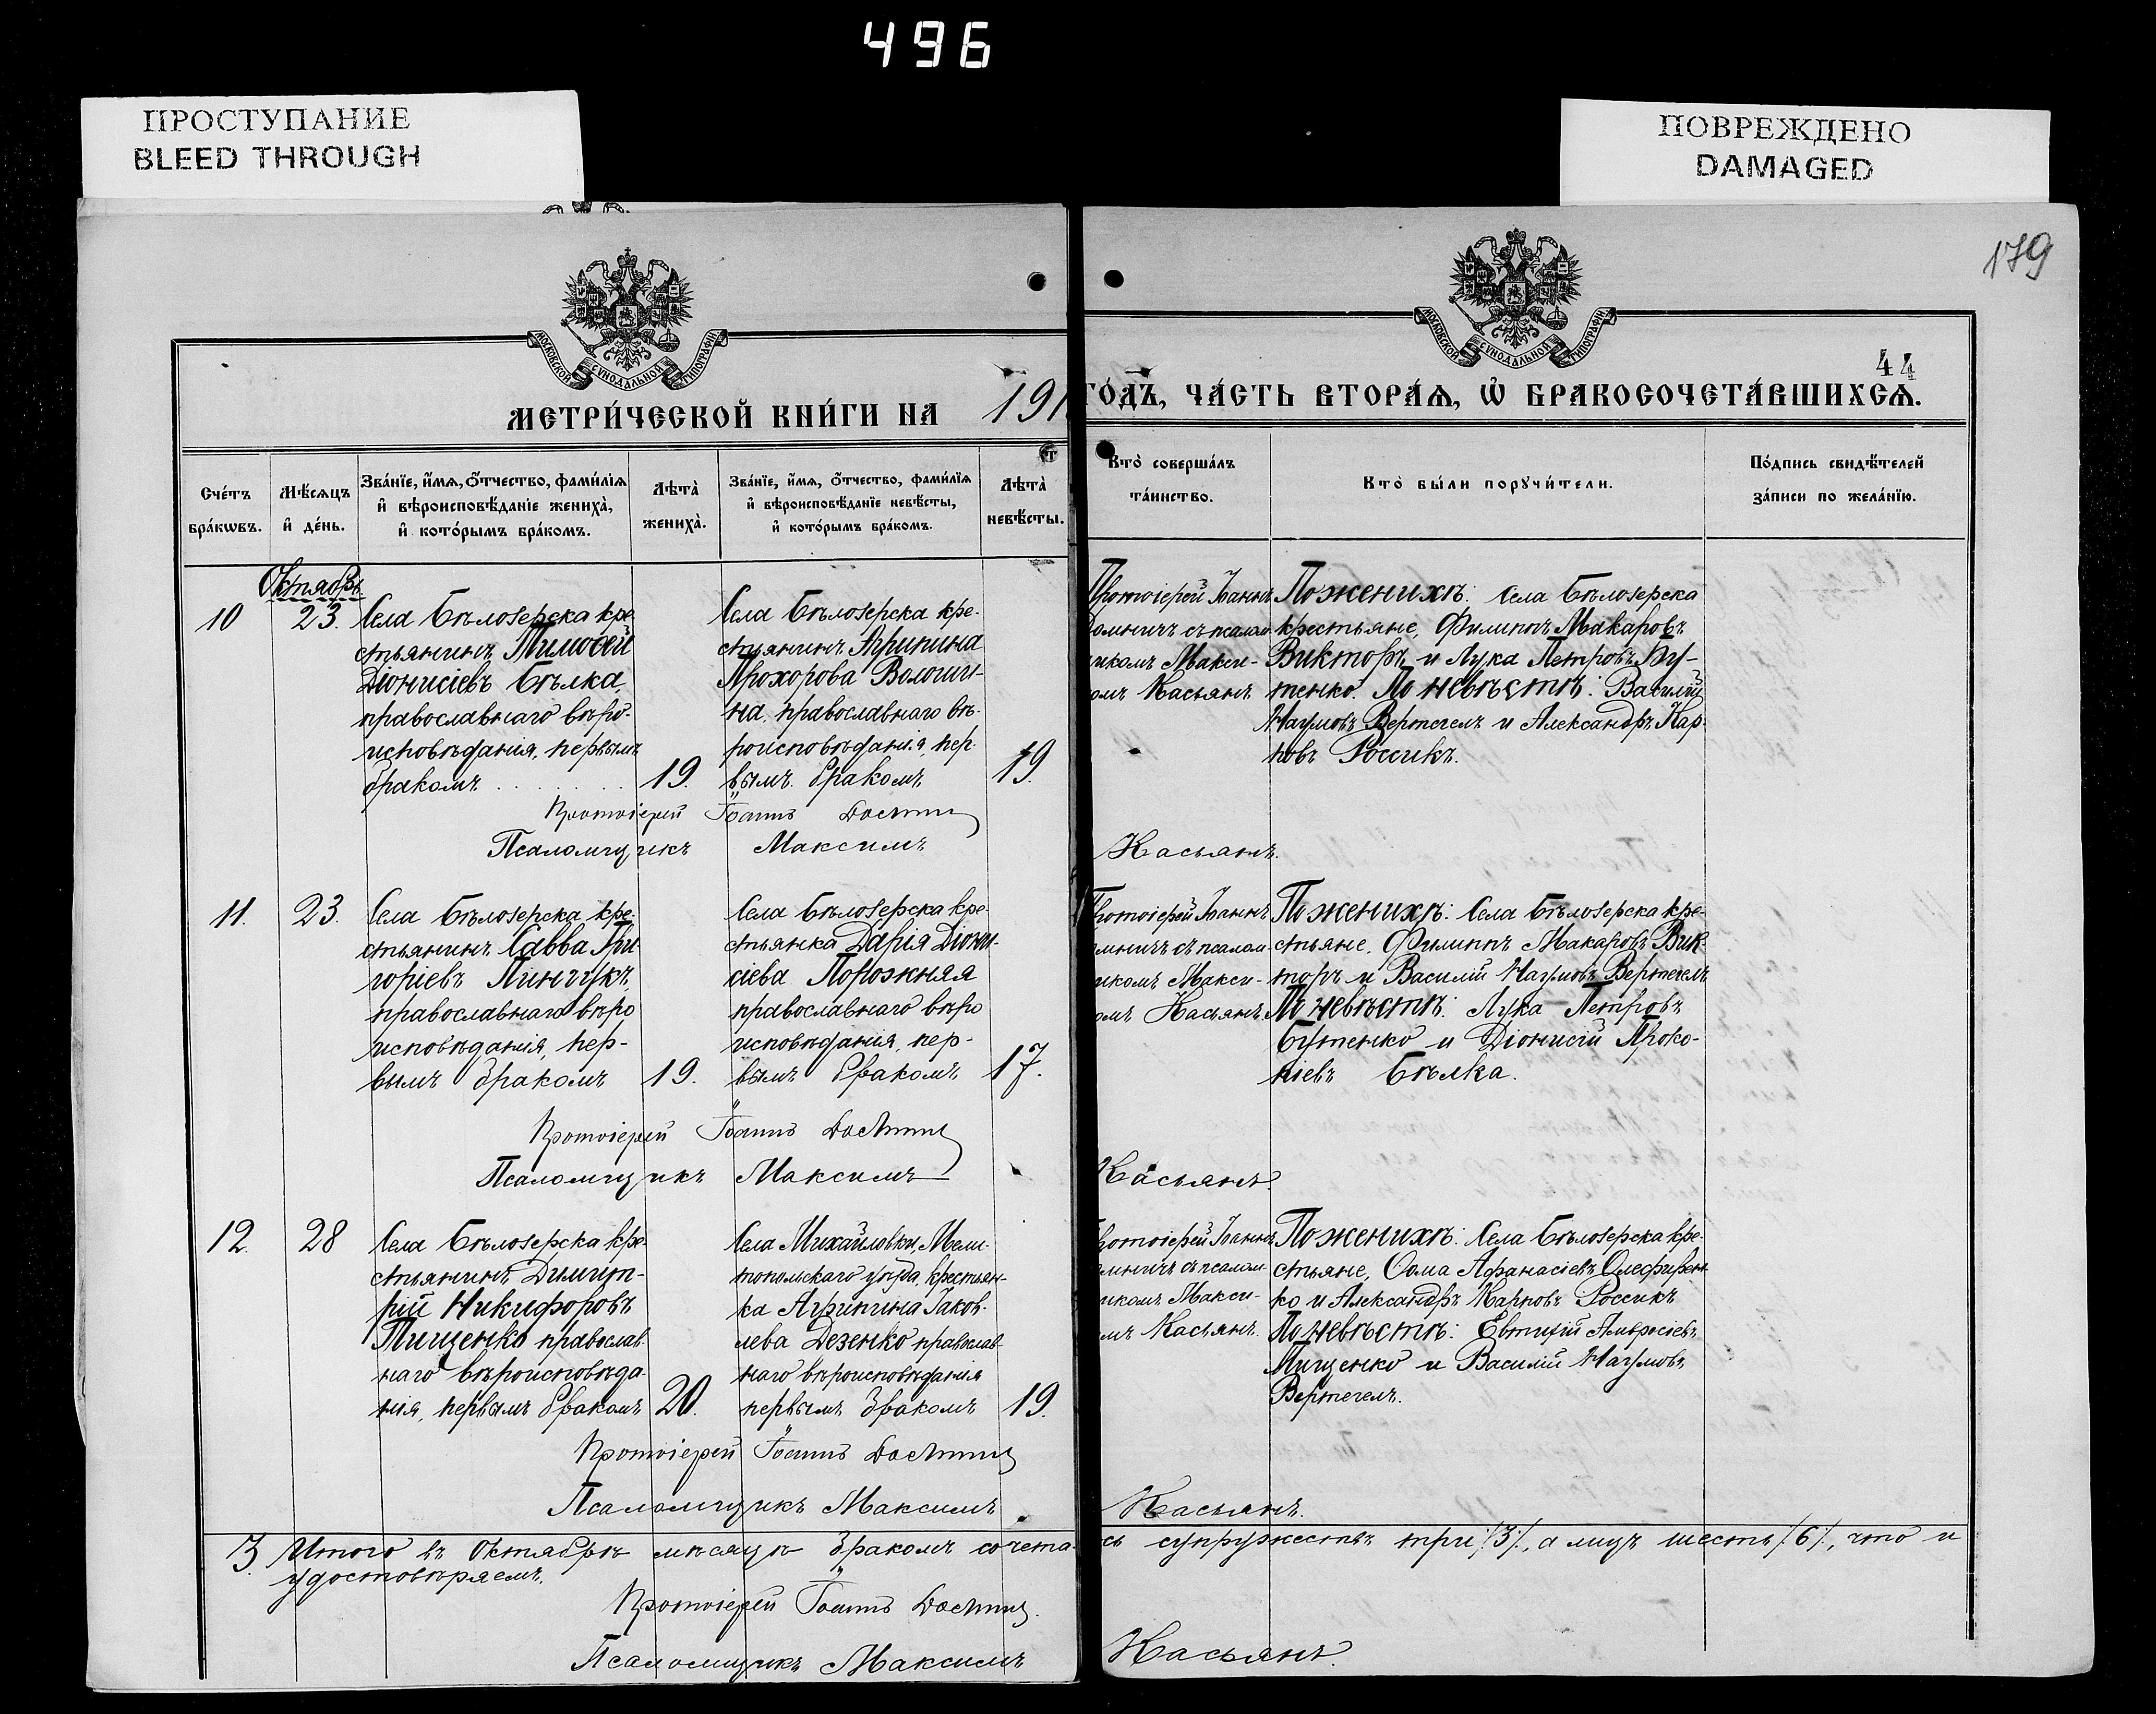 496
ПРОСТУПАНИЕ
BLEED THROUGH
ПОВРЕЖДЕНО
DAMAGED
179
44
МОСКОВСКОЙ СѴНОДАЛЬНОЙ ТИПОГРАФІИ
МОСКОВСКОЙ СѴНОДАЛЬНОЙ ТИПОГРАФІИ
МЕТРИ́ЧЕСКОЙ КНИ́ГИ НА 191
ГО́ДЪ, ЧА́СТЬ ВТОРА́Ѧ, Ѡ҆ БРАКОСОЧЕТА́ВШИХСѦ.
Сче́тъ
бра́кѡвъ.
Мѣ́сѧцъ
и҆ де́нь.
Зва́нїе, и҆́мѧ, о҆́тчество, фами́лїѧ
и҆ вѣроисповѣ́данїе жениха̀,
и҆ кото́рымъ бра́комъ.
Лѣта̀
жениха̀.
Зва́нїе, и҆́мѧ, о҆́тчество, фами́лїѧ
и҆ вѣроисповѣ́данїе невѣ́сты,
и҆ кото́рымъ бра́комъ.
Лѣта̀
невѣ́сты.
Кто̀ соверша́лъ
та́инство.
Кто̀ бы́ли порꙋчи́тели.
По́дпись свидѣ́телей
за́писи по жела́нїю.
Октябрь
10
23.
Села Бѣлозерска кре-
стьянинъ Тимоѳей
Діонисіевъ Бѣлка,
православнаго вѣро-
исповѣданія, первымъ
бракомъ
19.
Села Бѣлозерска кре-
стьянинъ Агрипина
Прохорова Вологи-
на, православнаго вѣ-
роисповѣданія, пер-
вымъ бракомъ
19.
Протоіерей Іоаннъ
омничъ съ псалом
икомъ Макси-
омъ Касьянъ
По женихѣ: Села Бѣлозерска
крестьяне, Филиппъ Макаровъ
Викторъ и Лука Петровъ Бу-
тенко. По невѣстѣ: Василій
Наумовъ Вертегелъ и Александръ Кар-
повъ Россикъ.
Протоіерей Іоаннъ
Псаломщикъ Максимъ Касьянъ.
11.
23.
Села Бѣлозерска кре-
стьянинъ Савва Гри
горіевъ Пинчукъ,
православнаго вѣро
исповѣданія, пер-
вымъ бракомъ
19.
Села Бѣлозерска кре-
стьянка Дарія Діони-
сіева Порожняя
православнаго вѣро
исповѣданія, пер-
вымъ бракомъ
17.
Протоіерей Іоаннъ
мничъ съ псалом-
икомъ Макси-
омъ Касьянъ.
По женихѣ: Села Бѣлозерска кре-
стьяне, Филиппъ Макаровъ Вик-
торъ и Василій Наумовъ Вертегелъ
По невѣстѣ: Лука Петровъ
Бутенко и Діонисій Проко-
піевъ Бѣлка.
Протоіерей Іоаннъ
Псаломщикъ Максимъ Касьянъ.
12.
28
Села Бѣлозерска кре-
стьянинъ Димит-
рій Никифоровъ
Тищенко православ-
наго вѣроисповѣда-
нія, первымъ бракомъ
20.
Села Михайловки, Мели-
топольскаго уѣзда, крестьян-
ка Агрипина Іаков-
лева Дезенко православ-
наго вѣроисповѣданія
первымъ бракомъ
19.
Протоіерей Іоаннъ
мничъ съ псалом-
икомъ Макси-
мъ Касьянъ.
По женихѣ: Села Бѣлозерска кре-
стьяне, Ѳома Афанасіевъ Олефирен-
ко и Александръ Карповъ Россикъ
По невѣстѣ: Евтихій Амвросіевъ
Тищенко и Василій Наумовъ
Вертегелъ.
Протоіерей Іоаннъ
Псаломщикъ Максимъ Касьянъ.
3. Итого въ Октябрѣ мѣсяцѣ бракомъ сочета-сь супружествъ три /3/, а лицъ шесть /6/, что и
удостовѣряемъ.
Протоіерей Іоаннъ
Псаломщикъ Максимъ Касьянъ.